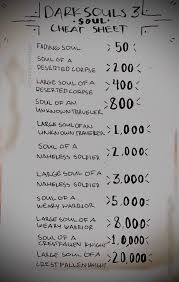 DARK SOULS 3
• SOUL •
CHEAT SHEET
FADING SOUL 50
SOUL OF A
DESERTED CORPSE 200
LARGE SOUL OF A
DESERTED CORPSE 400
SOUL OF AN
UNKNOWN TRAVELER 800
LARGE SOUL OF AN
UNKNOWN TRAVELER 1,000
SOUL OF A
NAMELESS SOLDIER 2,000
LARGE SOUL OF A
NAMELESS SOLDIER 3,000
SOUL OF A
WEARY WARRIOR 5,000
LARGE SOUL OF A
WEARY WARRIOR 8,000
SOUL OF A
CRESTFALLEN KNIGHT 10,000
LARGE SOUL OF A
CRESTFALLEN KNIGHT 20,000